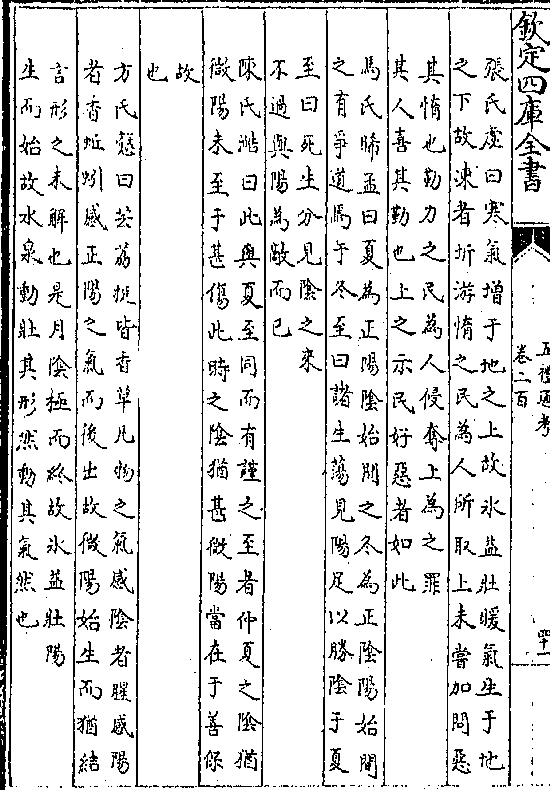 欽定四庫全書
五禮通考
卷二百
四十
張氏虙曰寒氣增于地之上故氷益壯暖氣生于地
之下故凍者坼游惰之民為人所取上未嘗加問惡
其惰也勤力之民為人侵奪上為之罪
其人喜其勤也上之示民好惡者如此
馬氏睎孟曰夏為正陽陰始間之冬為正陰陽始間
之有爭道焉于冬至曰諸生蕩見陽足以勝陰于夏
至曰死生分見陰之來
不過與陽為敵而已
陳氏澔曰此與夏至同而有謹之至者仲夏之陰猶
微陽未至于甚傷此時之陰猶甚微陽當在于善保
故
也
方氏慤曰芸荔挺皆香草凡物之氣感陰者腥感陽
者香蚯蚓感正陽之氣而後出故微陽始生而猶結
言形之未解也是月陰極而終故氷益壯陽
生而始故水泉動壯其形然動其氣然也